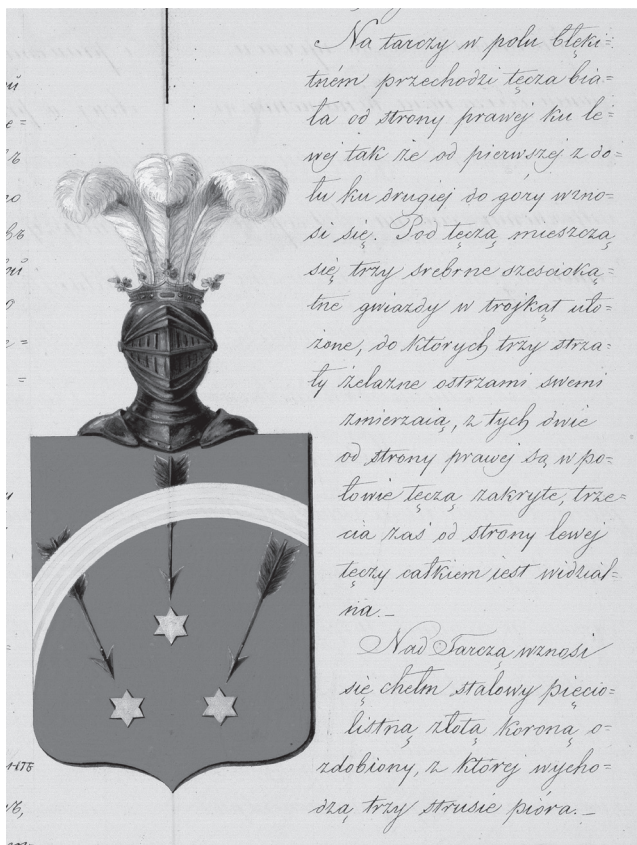 Na tarczy w polu błęki=
tném przechodzi tęcza bia=
ła od strony prawej ku le=
wej tak że od pierwszej z do=
łu ku drugiej do góry wzno=
si się. Pod tęczą mieszczą
się trzy srebrne sześcioką=
tne gwiazdy w trojkąt uło=
żone, do których trzy strza=
ły żelazne ostrzami swemi
zmierzaią, z tych dwie
od strony prawej są w po=
łowie tęczą zakryte, trze=
cia zaś od strony lewej
tęczy całkiem iest widzial=
na._
Nad Tarczą wznosi
się chełm stalowy pięcio=
listną złotą koroną o=
zdobiony, z której wycho=
dzą trzy strusie pióra._